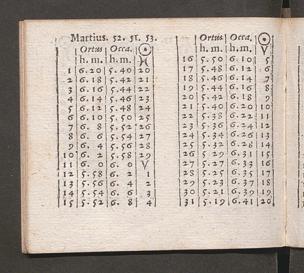 Martius. 52. 51. 53.
Ortus Occa. ☉
h. m. h. m. ♓
1 6.20 5.40 20
2 6.18 5.42 21
3 6.16 5.44 22
4 6.14 5.46 23
5 6.12 5.48 24
6 6.10 5.50 26
7 6. 8 5.52 26
8 6. 6 5.54 27
9 6. 4 5.56 28
10 6. 2 5.58 29
11 6. 0 6. 0 ♈
12 5.58 6. 2 1
13 5.56 6. 4 2
14 5.54 6. 6 3
15 5.52 6. 8 4
Ortus Occa. ☉
h. m. h. m. ♈
16 5.50 6.10 5
17 5.48 6.12 6
18 5.46 6.14 7
19 5.44 6.16 8
20 5.42 6.18 9
21 5.40 6.20 10
22 5.38 6.22 11
23 5.36 6.24 12
24 5.34 6.26 13
25 5.32 6.28 14
26 5.29 6.31 15
27 5.27 6.33 16
28 5.25 6.35 17
29 5.23 6.37 18
30 5.21 6.39 19
31 5.19 6.41 20